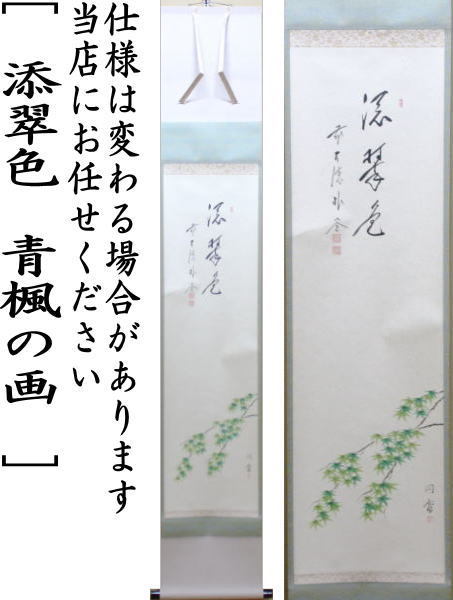 仕様は変わる場合があります
当店にお任せください
[ 添翠色 青楓の画 ]
添翠色
添翠色